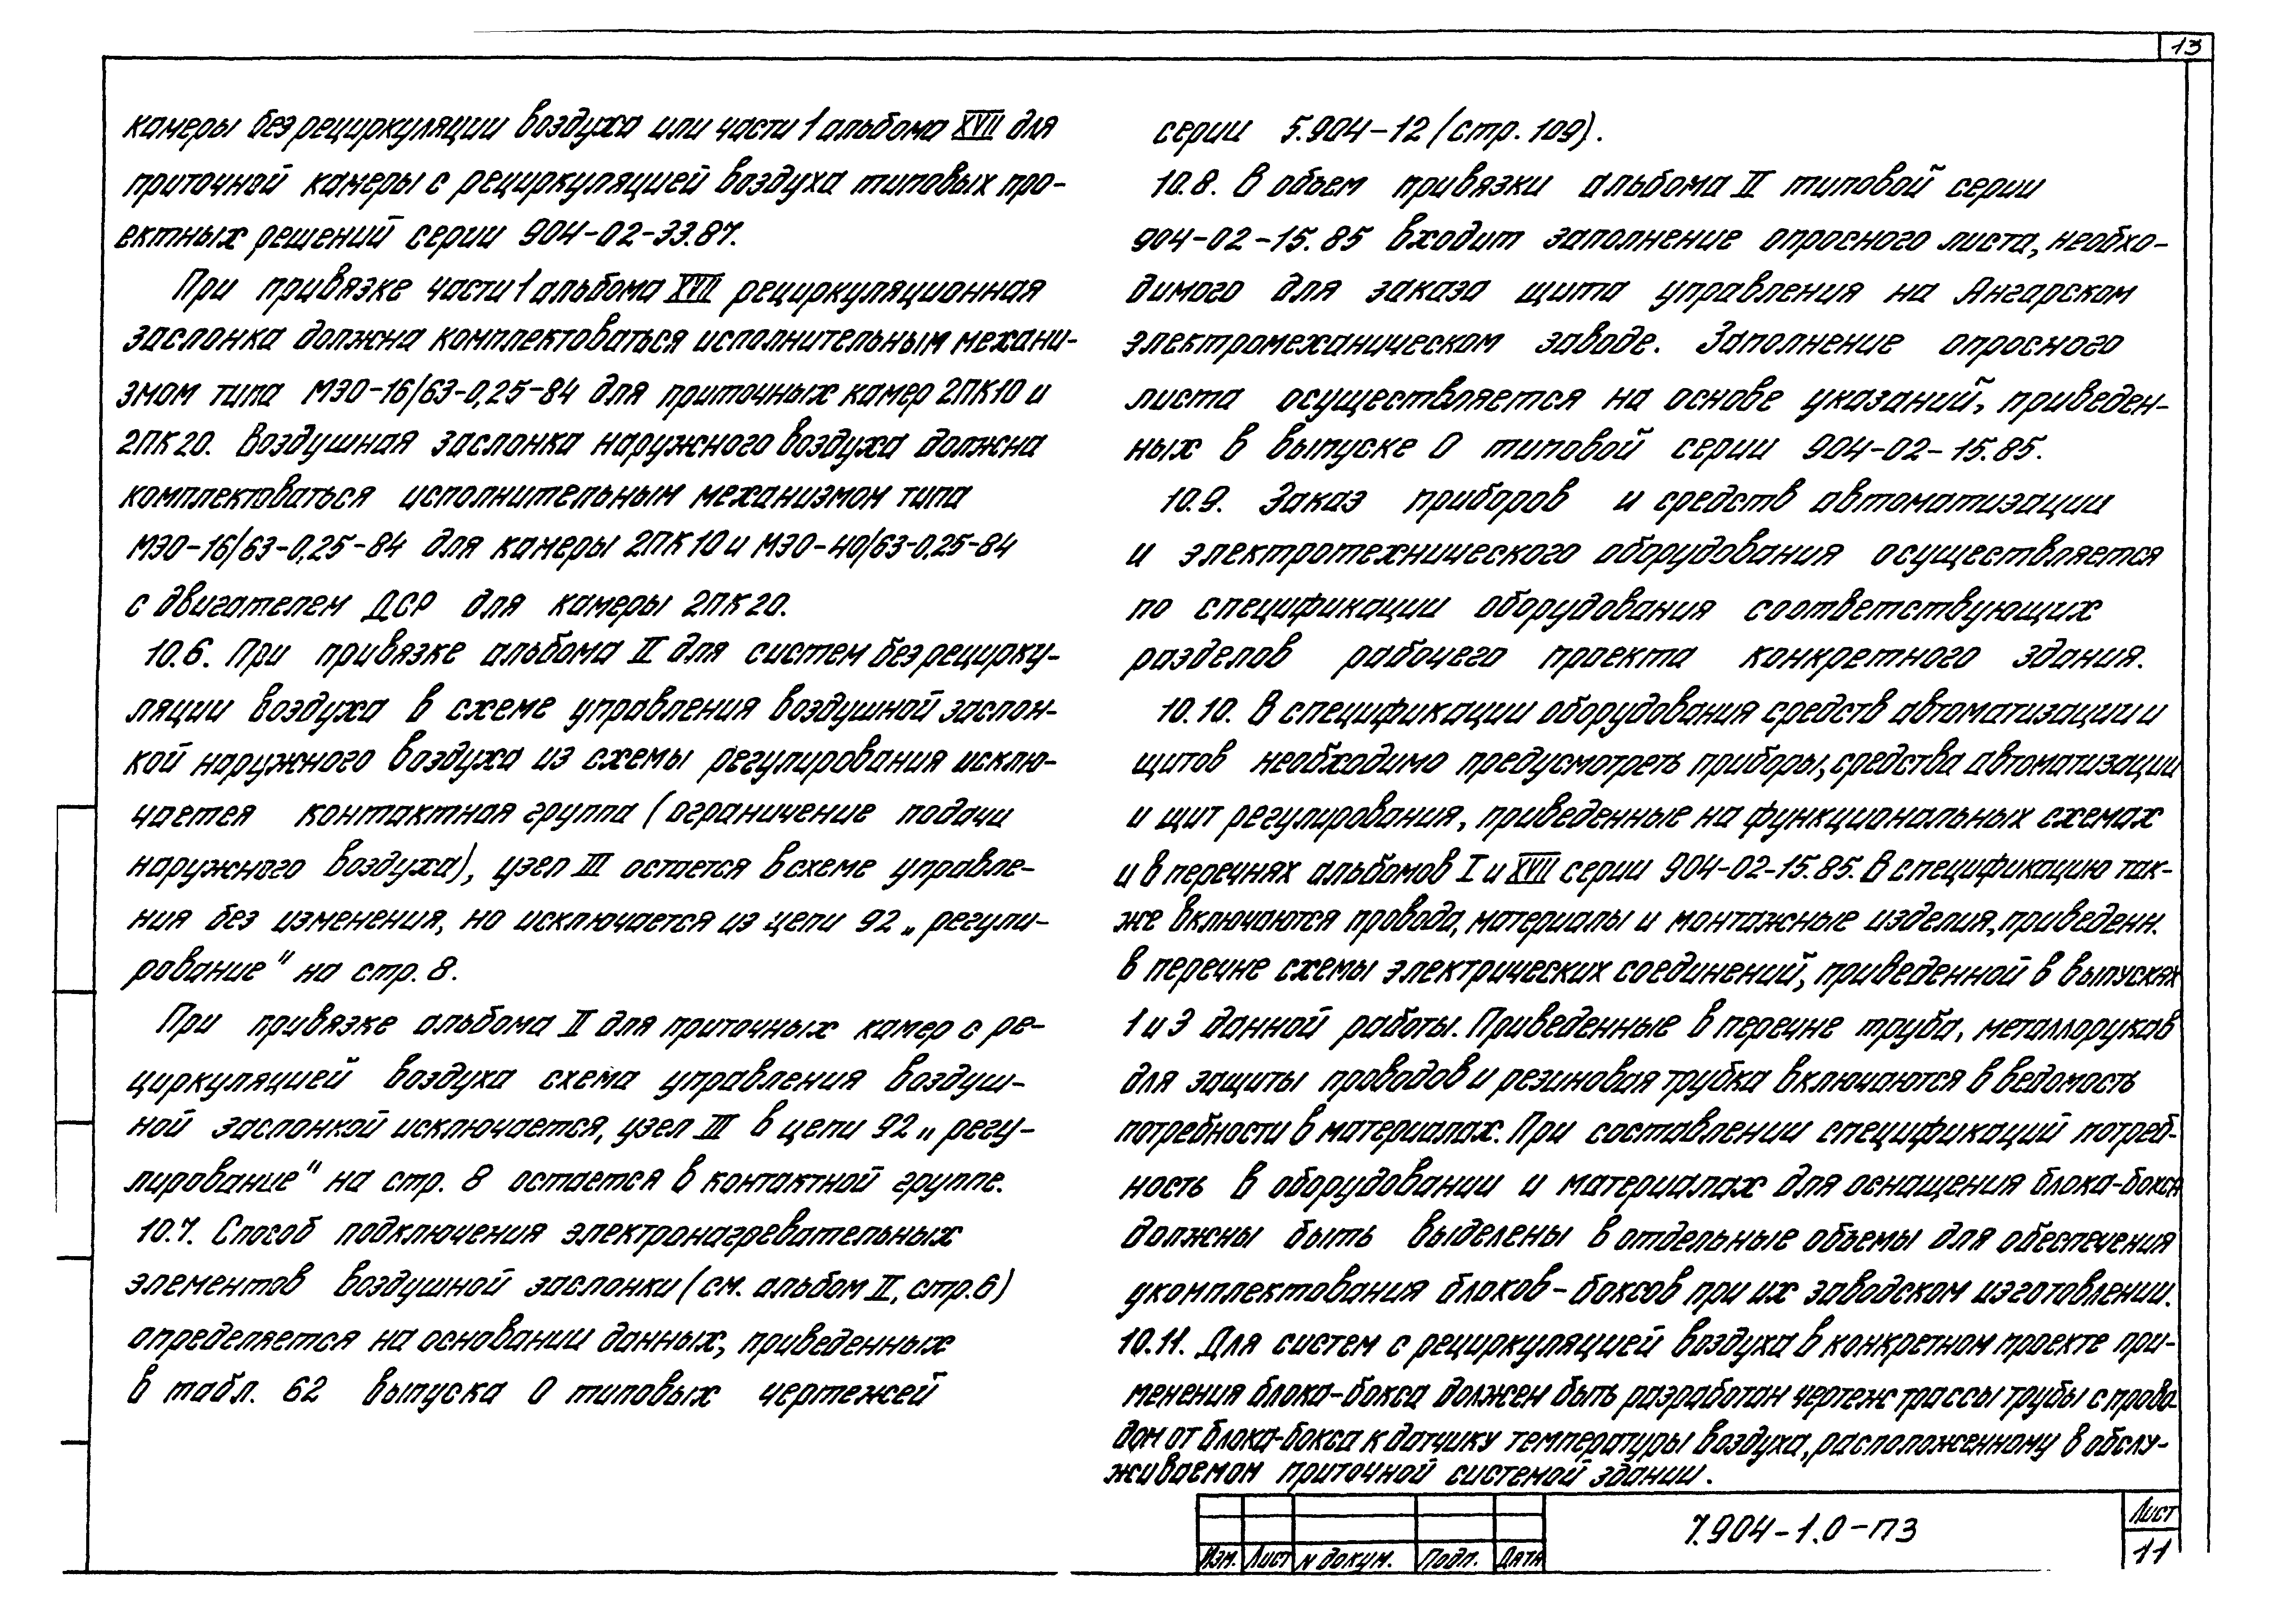 13
камеры без рециркуляции воздуха или части 1 альбома XVII для
приточной камеры с рециркуляцией воздуха типовых про-
ектных решений серии 904-02-33.87.
При привязке части 1 альбома XVII рециркуляционная
заслонка должна комплектоваться исполнительным механи-
змом типа МЭО-16/63-0,25-84 для приточных камер 2ПК10 и
2ПК20. Воздушная заслонка наружного воздуха должна
комплектоваться исполнительным механизмом типа
МЭО-16/63-0,25-84 для камеры 2ПК10 и МЭО-40/63-0,25-84
с двигателем ДСР для камеры 2ПК20.
10.6. При привязке альбома II для систем без рецирку-
ляции воздуха в схеме управления воздушной заслон-
кой наружного воздуха из схемы регулирования исклю-
чается контактная группа (ограничение подачи
наружного воздуха), узел III остается в схеме управле-
ния без изменения, но исключается из цепи 92 „регули-
рование" на стр. 8.
При привязке альбома II для приточных камер с ре-
циркуляцией воздуха схема управления воздуш-
ной заслонкой исключается, узел III в цепи 92 „регу-
лирование" на стр. 8 остается в контактной группе.
10.7. Способ подключения электронагревательных
элементов воздушной заслонки (см. альбом II, стр. 6)
определяется на основании данных, приведенных
в табл. 62 выпуска 0 типовых чертежей
серии 5.904-12 (стр. 109).
10.8. В объем привязки альбома II типовой серии
904-02-15.85 входит заполнение опросного листа, необхо-
димого для заказа щита управления на Ангарском
электромеханическом заводе. Заполнение опросного
листа осуществляется на основе указаний, приведен-
ных в выпуске 0 типовой серии 904-02-15.85.
10.9. Заказ приборов и средств автоматизации
и электротехнического оборудования осуществляется
по спецификации оборудования соответствующих
разделов рабочего проекта конкретного здания.
10.10. В спецификации оборудования средств автоматизации и
щитов необходимо предусмотреть приборы, средства автоматизации
и щит регулирования, приведенные на функциональных схемах
и в перечнях альбомов I и XVII серии 904-02-15.85. В спецификацию так-
же включаются провода, материалы и монтажные изделия, приведенн.
в перечне схемы электрических соединений, приведенной в выпусках
1 и 3 данной работы. Приведенные в перечне труба, металлорукав
для защиты проводов и резиновая трубка включаются в ведомость
потребности в материалах. При составлении спецификаций потреб-
ность в оборудовании и материалах для оснащения блока-бокса
должны быть выделены в отдельные объемы для обеспечения
укомплектования блоков-боксов при их заводском изготовлении.
10.11. Для систем с рециркуляцией воздуха в конкретном проекте при-
менения блока-бокса должен быть разработан чертеж трассы трубы с прово-
дом от блока-бокса к датчику температуры воздуха, расположенному в обслу-
живаемом приточной системой здании.
Изм. Лист N докум. Подп. Дата
7.904-1.0-ПЗ
Лист
11